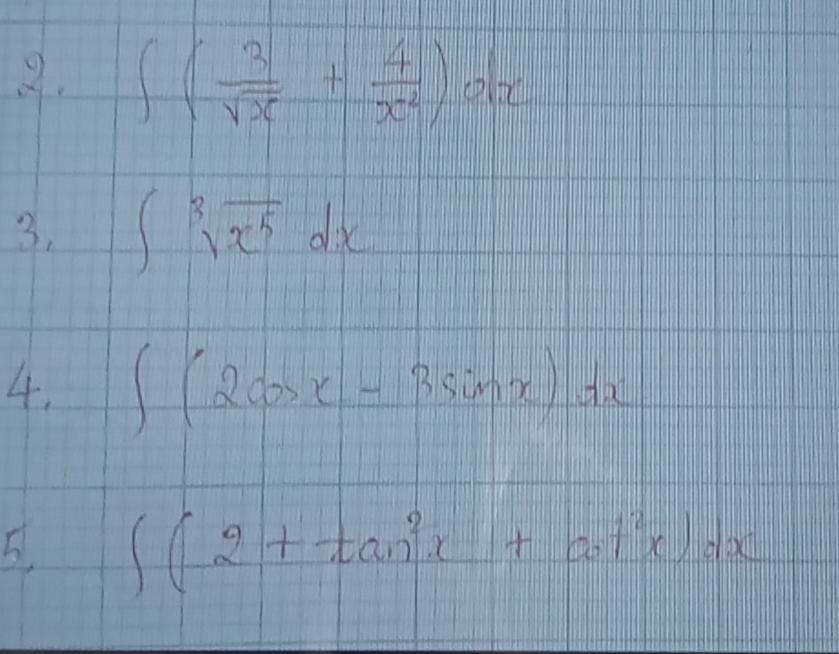 2. ∫ (3/√x + 4/x²) dx
3. ∫ ³√x⁵ dx
4. ∫ (2cosx - 3sinx) dx
5. ∫ (2 + tan²x + cot²x) dx